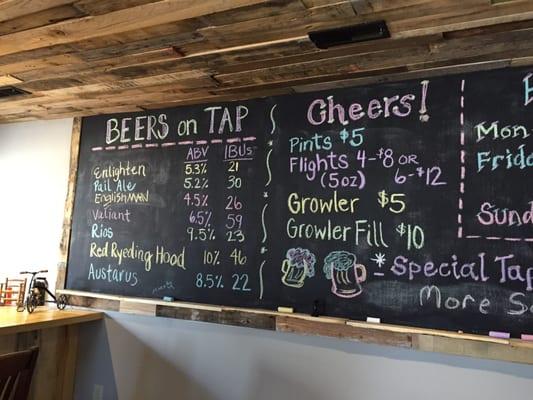 BEERS on TAP
ABV IBUs
Enlighten 5.3% 21
Pail Ale 5.2% 30
English MAN 4.5% 26
Valiant 6.5% 59
Rios 9.5% 23
Red Ryeding Hood 10% 46
Austarus 8.5% 22
Cheers!
Pints $5
Flights 4-$8 OR
(5oz) 6-$12
Growler $5
Growler Fill $10
* Special Tap
More So
Mon
Frida
Sund